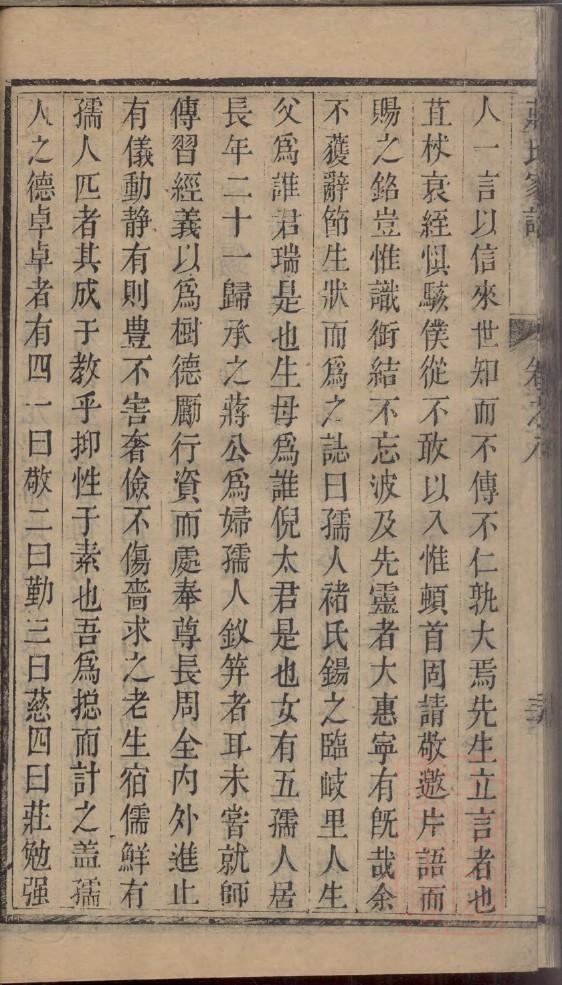 人一言以信來世知而不傳不仁孰大焉先生立言者也
苴杖衰絰惧駭僕從不敢以入惟頓首固請敬邀片語而
賜之銘豈惟識銜結不忘波及先靈者大惠寧有旣哉余
不獲辭節生狀而爲之誌曰孺人褚氏錫之臨岐里人生
父爲誰君瑞是也生母爲誰倪太君是也女有五孺人居
長年二十一歸承之蔣公爲婦孺人釵笄者耳未甞就師
傳習經義以爲樹德勵行資而處奉尊長周全內外進止
有儀動静有則豊不害奢儉不傷嗇求之老生宿儒鮮有
孺人匹者其成于教乎抑性于素也吾爲摠而計之盖孺
人之德卓卓者有四一曰敬二曰勤三曰慈四曰莊勉强
氏家
卷之八